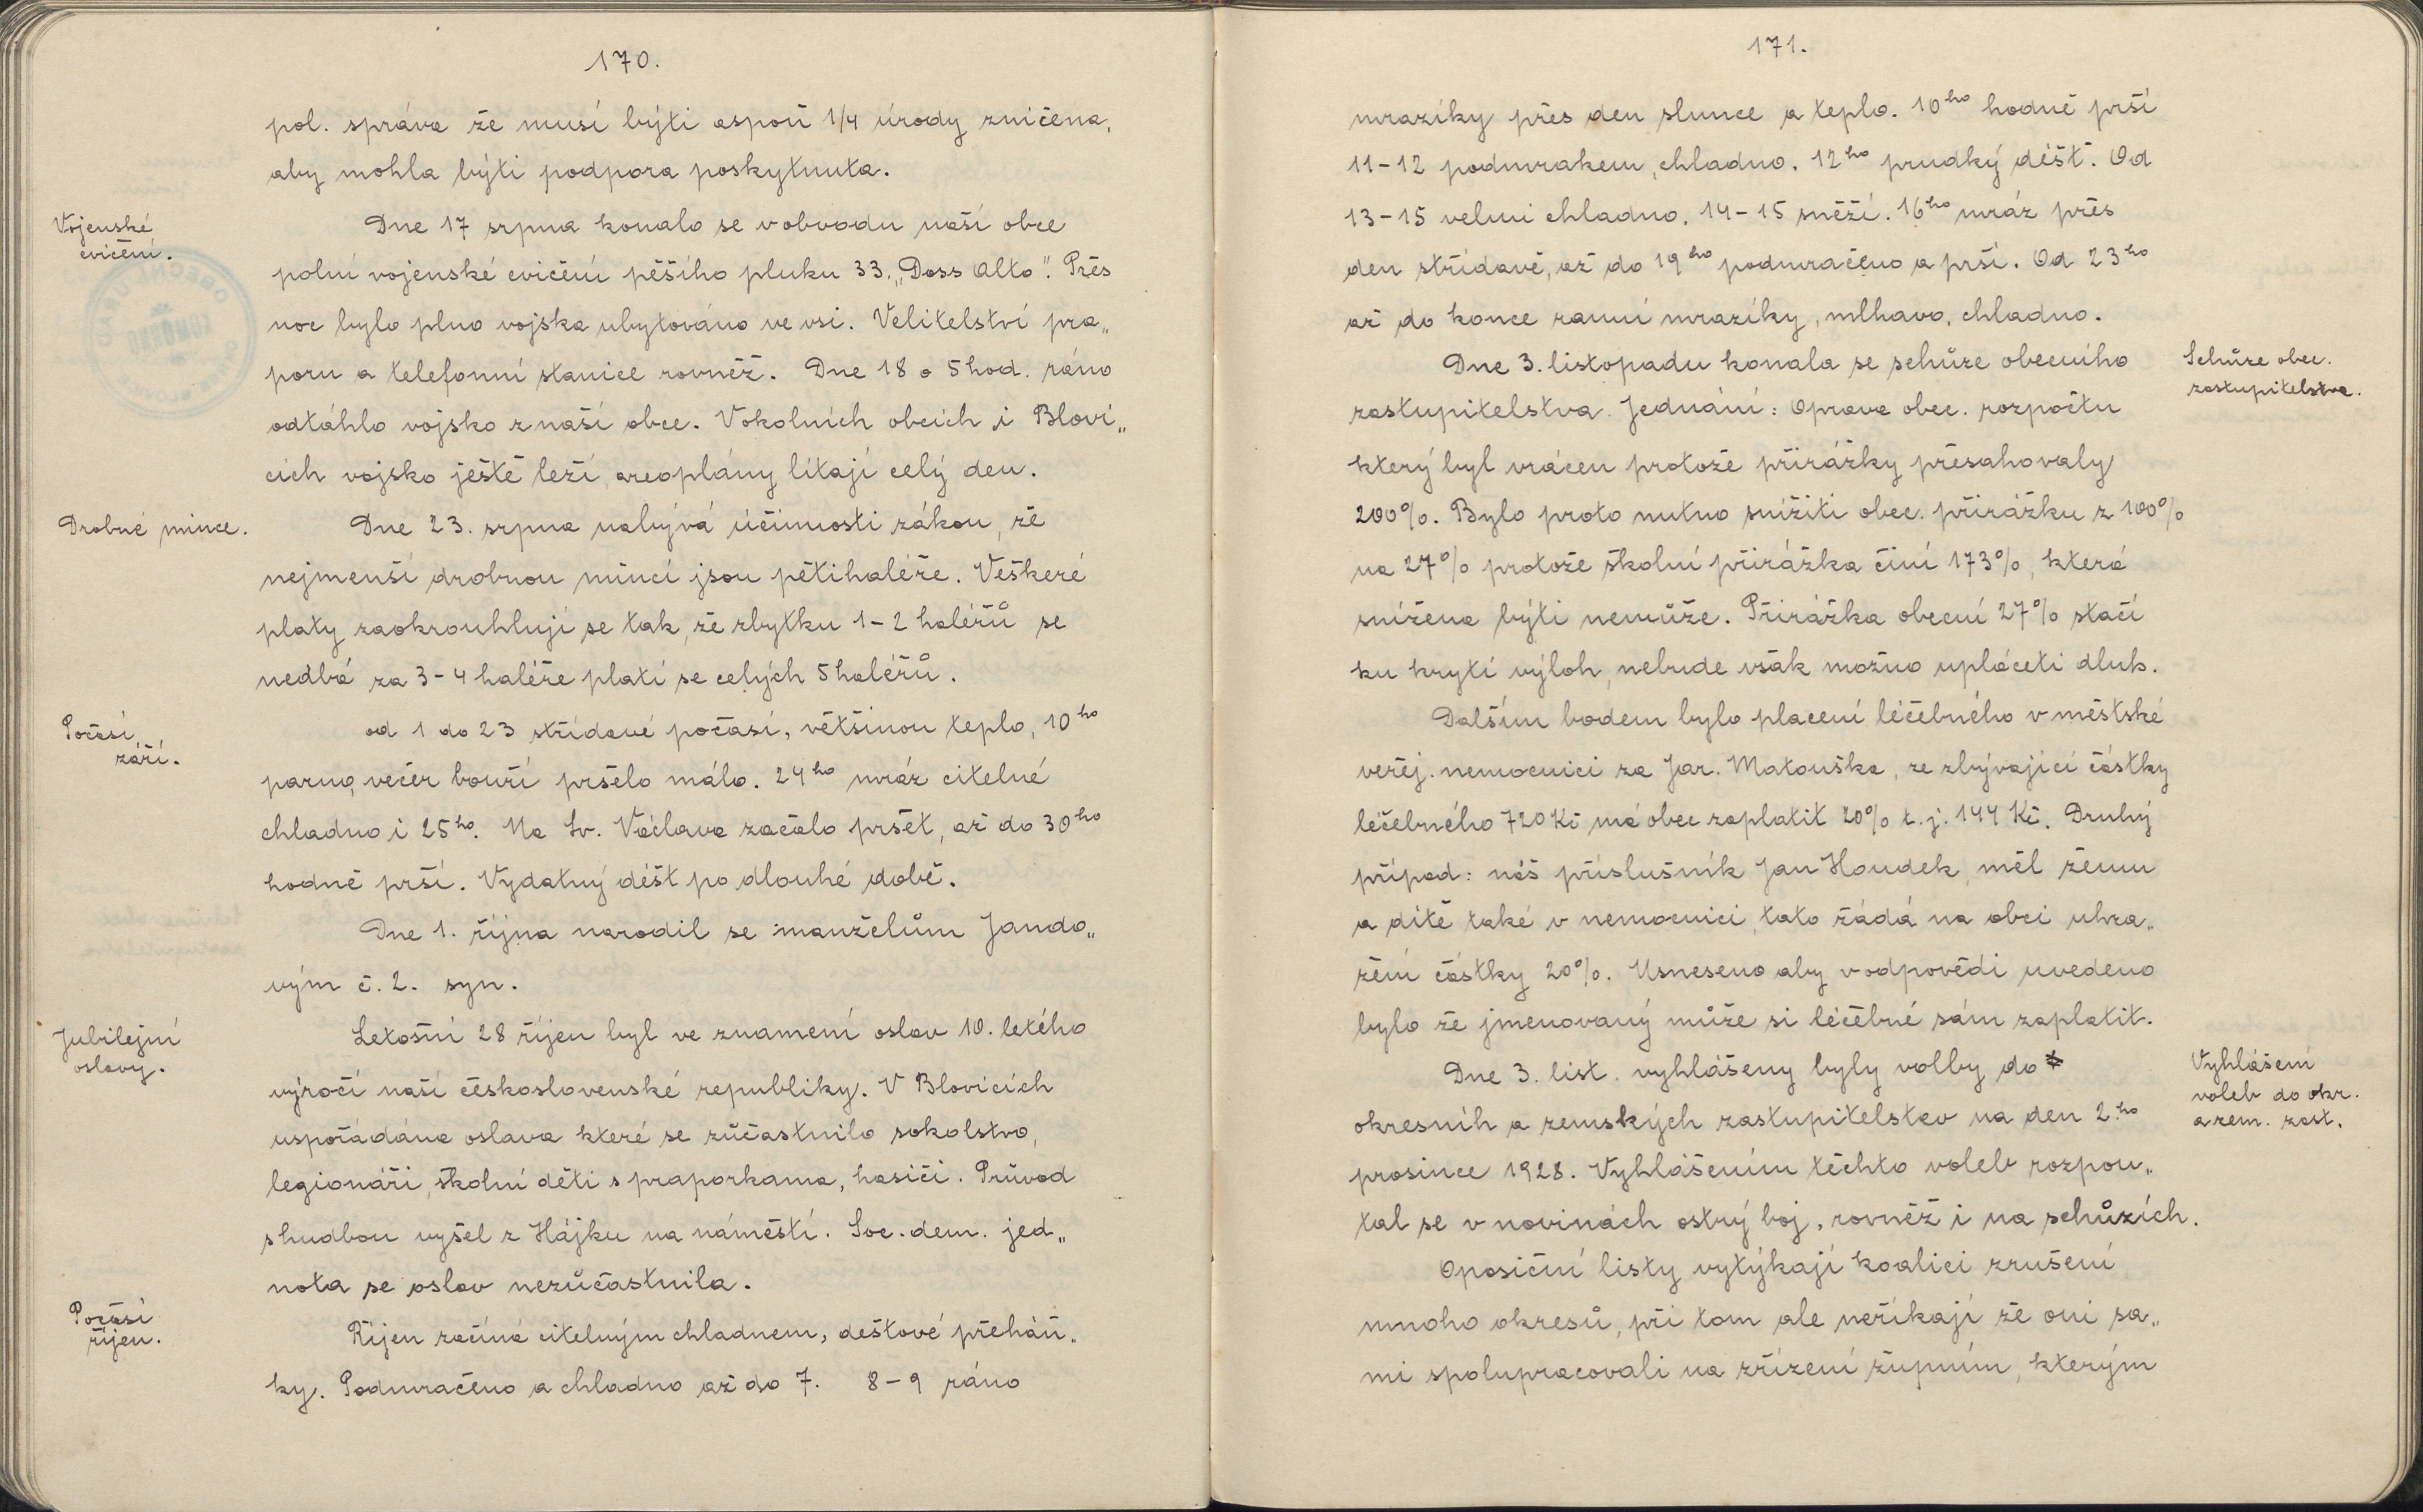 170.
pol. správa že musí býti aspoň 1/4 úrody zničena,
aby mohla býti podpora poskytnuta.
Vojenské
cvičení.
Dne 17 srpna konalo se v obvodu naší obce
polní vojenské cvičení pěšího pluku 33. „Doss Alto". Přes
noc bylo plno vojska ubytováno ve vsi. Velitelství pra„
poru a telefonní stanice rovněž. Dne 18 o 5 hod. ráno
odtáhlo vojsko z naší obce. V okolních obcích i Blovi„
cích vojsko ještě leží, areoplány lítají celý den.
Drobné mince.
Dne 23. srpna nabývá účinnosti zákon, že
nejmenší drobnou mincí jsou pětihaléře. Veškeré
platy zaokrouhlují se tak, že zbytku 1-2 haléřů se
nedbá za 3-4 haléře platí se celých 5 haléřů.
Počasí
září.
od 1 do 23 střídavé počasí, většinou teplo, 10ho
parno, večer bouří pršelo málo. 24ho mráz citelné
chladno i 25ho. Na Sv. Václava začalo pršet, až do 30ho
hodně prší. Vydatný déšt po dlouhé době.
Dne 1. října narodil se manželům Jando„
vým č. 2. syn.
Jubilejní
oslavy.
Letošní 28 říjen byl ve znamení oslav 10. letého
výročí naší československé republiky. V Blovicích
uspořádána oslava které se zůčastnilo sokolstvo,
legionáři, školní děti s praporkama, hasiči. Průvod
s hudbou vyšel z Hájku na náměstí. Soc. dem. jed„
nota se oslav nezůčastnila.
Počasí
říjen.
Říjen začíná citelným chladnem, deštové přeháň„
ky. Podmračeno a chladno až do 7. 8-9 ráno
171.
mrazíky přes den slunce a teplo. 10ho hodně prší
11-12 podmrakem, chladno. 12ho prudký déšť. Od
13-15 velmi chladno. 14-15 sněží. 16ho mráz přes
den střídavě, až do 19ho podmračeno a prší. Od 23ho
až do konce ranní mrazíky, mlhavo, chladno.
Schůze obec.
zastupitelstva.
Dne 3. listopadu konala se schůze obecního
zastupitelstva. Jednání: Oprava obec. rozpočtu
který byl vrácen protože přirážky přesahovaly
200%. Bylo proto nutno snížiti obec. přirážku z 100%
na 27% protože školní přirážka činí 173%, která
snížena býti nemůže. Přirážka obecní 27% stačí
ku krytí výloh, nebude však možno upláceti dluh.
Dalším bodem bylo placení léčebného v městské
veřej. nemocnici za Jar. Matouška, ze zbývající částky
léčebného 720 Kč má obec zaplatit 20% t. j. 144 Kč. Druhý
případ: náš příslušník Jan Houdek, měl ženu
a dítě také v nemocnici, tato žádá na obci uhra„
žení částky 20%. Usneseno aby v odpovědi uvedeno
bylo že jmenovaný může si léčebné sám zaplatit.
Vyhlášení
voleb do okr.
a zem. zast.
Dne 3. list. vyhlášeny byly volby do
okresníh a zemských zastupitelstev na den 2.ho
prosince 1928. Vyhlášením těchto voleb rozpou„
tal se v novinách ostrý boj, rovněž i na schůzích.
Oposiční listy vytýkají koalici zrušení
mnoho okresů, při tom ale neříkají že oni sa„
mi spolupracovali na zřízení župním, kterým